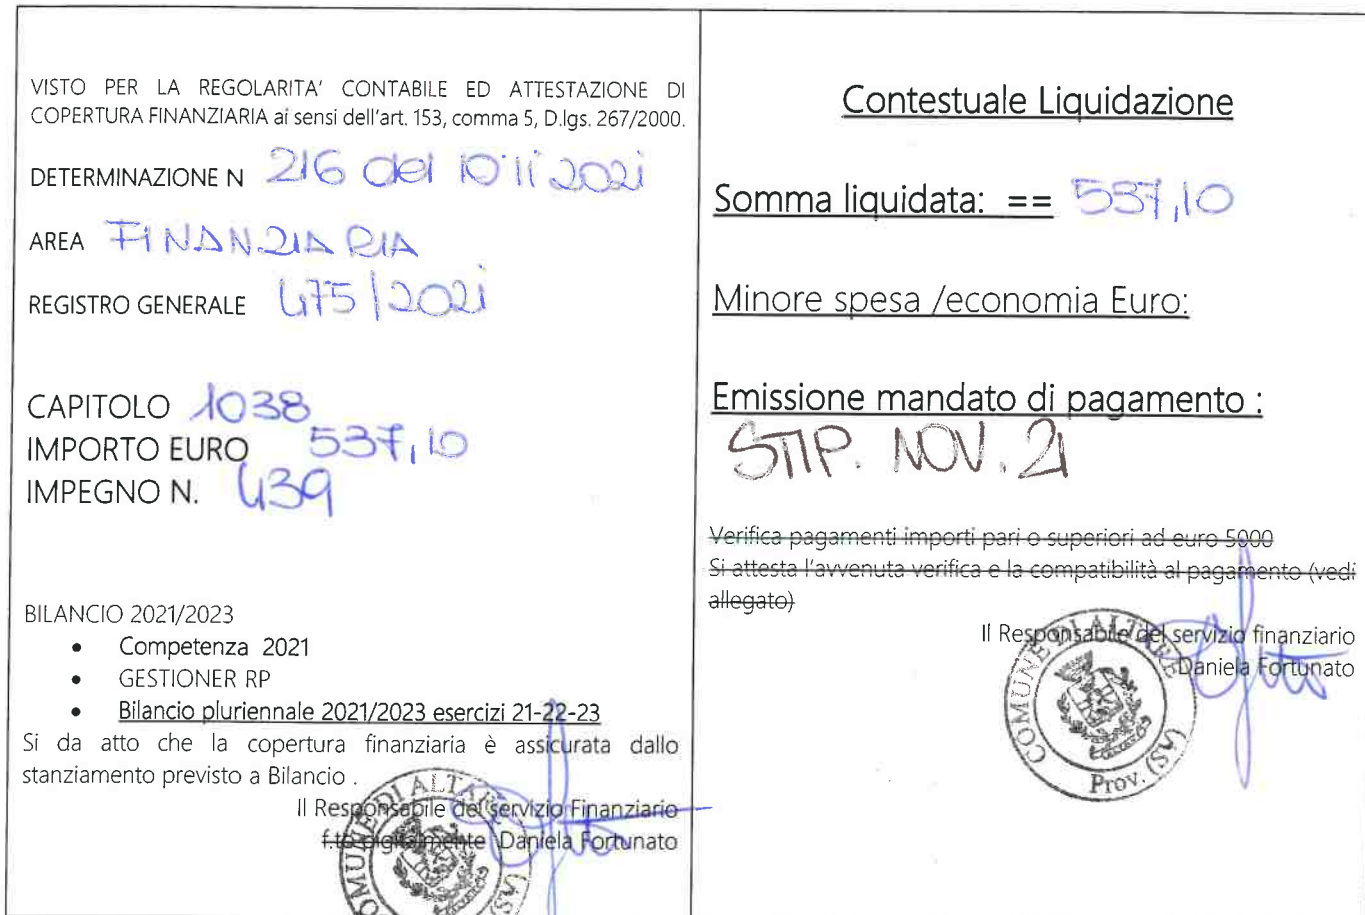 VISTO PER LA REGOLARITA' CONTABILE ED ATTESTAZIONE DI
COPERTURA FINANZIARIA ai sensi dell'art. 153, comma 5, D.lgs. 267/2000.
DETERMINAZIONE N 216 del 10 11 2021
AREA FINANZIARIA
REGISTRO GENERALE 475/2021
CAPITOLO 1038
IMPORTO EURO 537,10
IMPEGNO N. 439
BILANCIO 2021/2023
• Competenza 2021
• GESTIONER RP
• Bilancio pluriennale 2021/2023 esercizi 21-22-23
Si da atto che la copertura finanziaria è assicurata dallo
stanziamento previsto a Bilancio .
Il Responsabile del servizio Finanziario
f.to digitalmente Daniela Fortunato
COMUNE DI ALTARE
Contestuale Liquidazione
Somma liquidata: == 537,10
Minore spesa /economia Euro:
Emissione mandato di pagamento :
STIP. NOV. 21
Verifica pagamenti importi pari o superiori ad euro 5000
Si attesta l'avvenuta verifica e la compatibilità al pagamento (vedi
allegato)
Il Responsabile del servizio finanziario
Daniela Fortunato
COMUNE DI ALTARE
Prov. (SV)